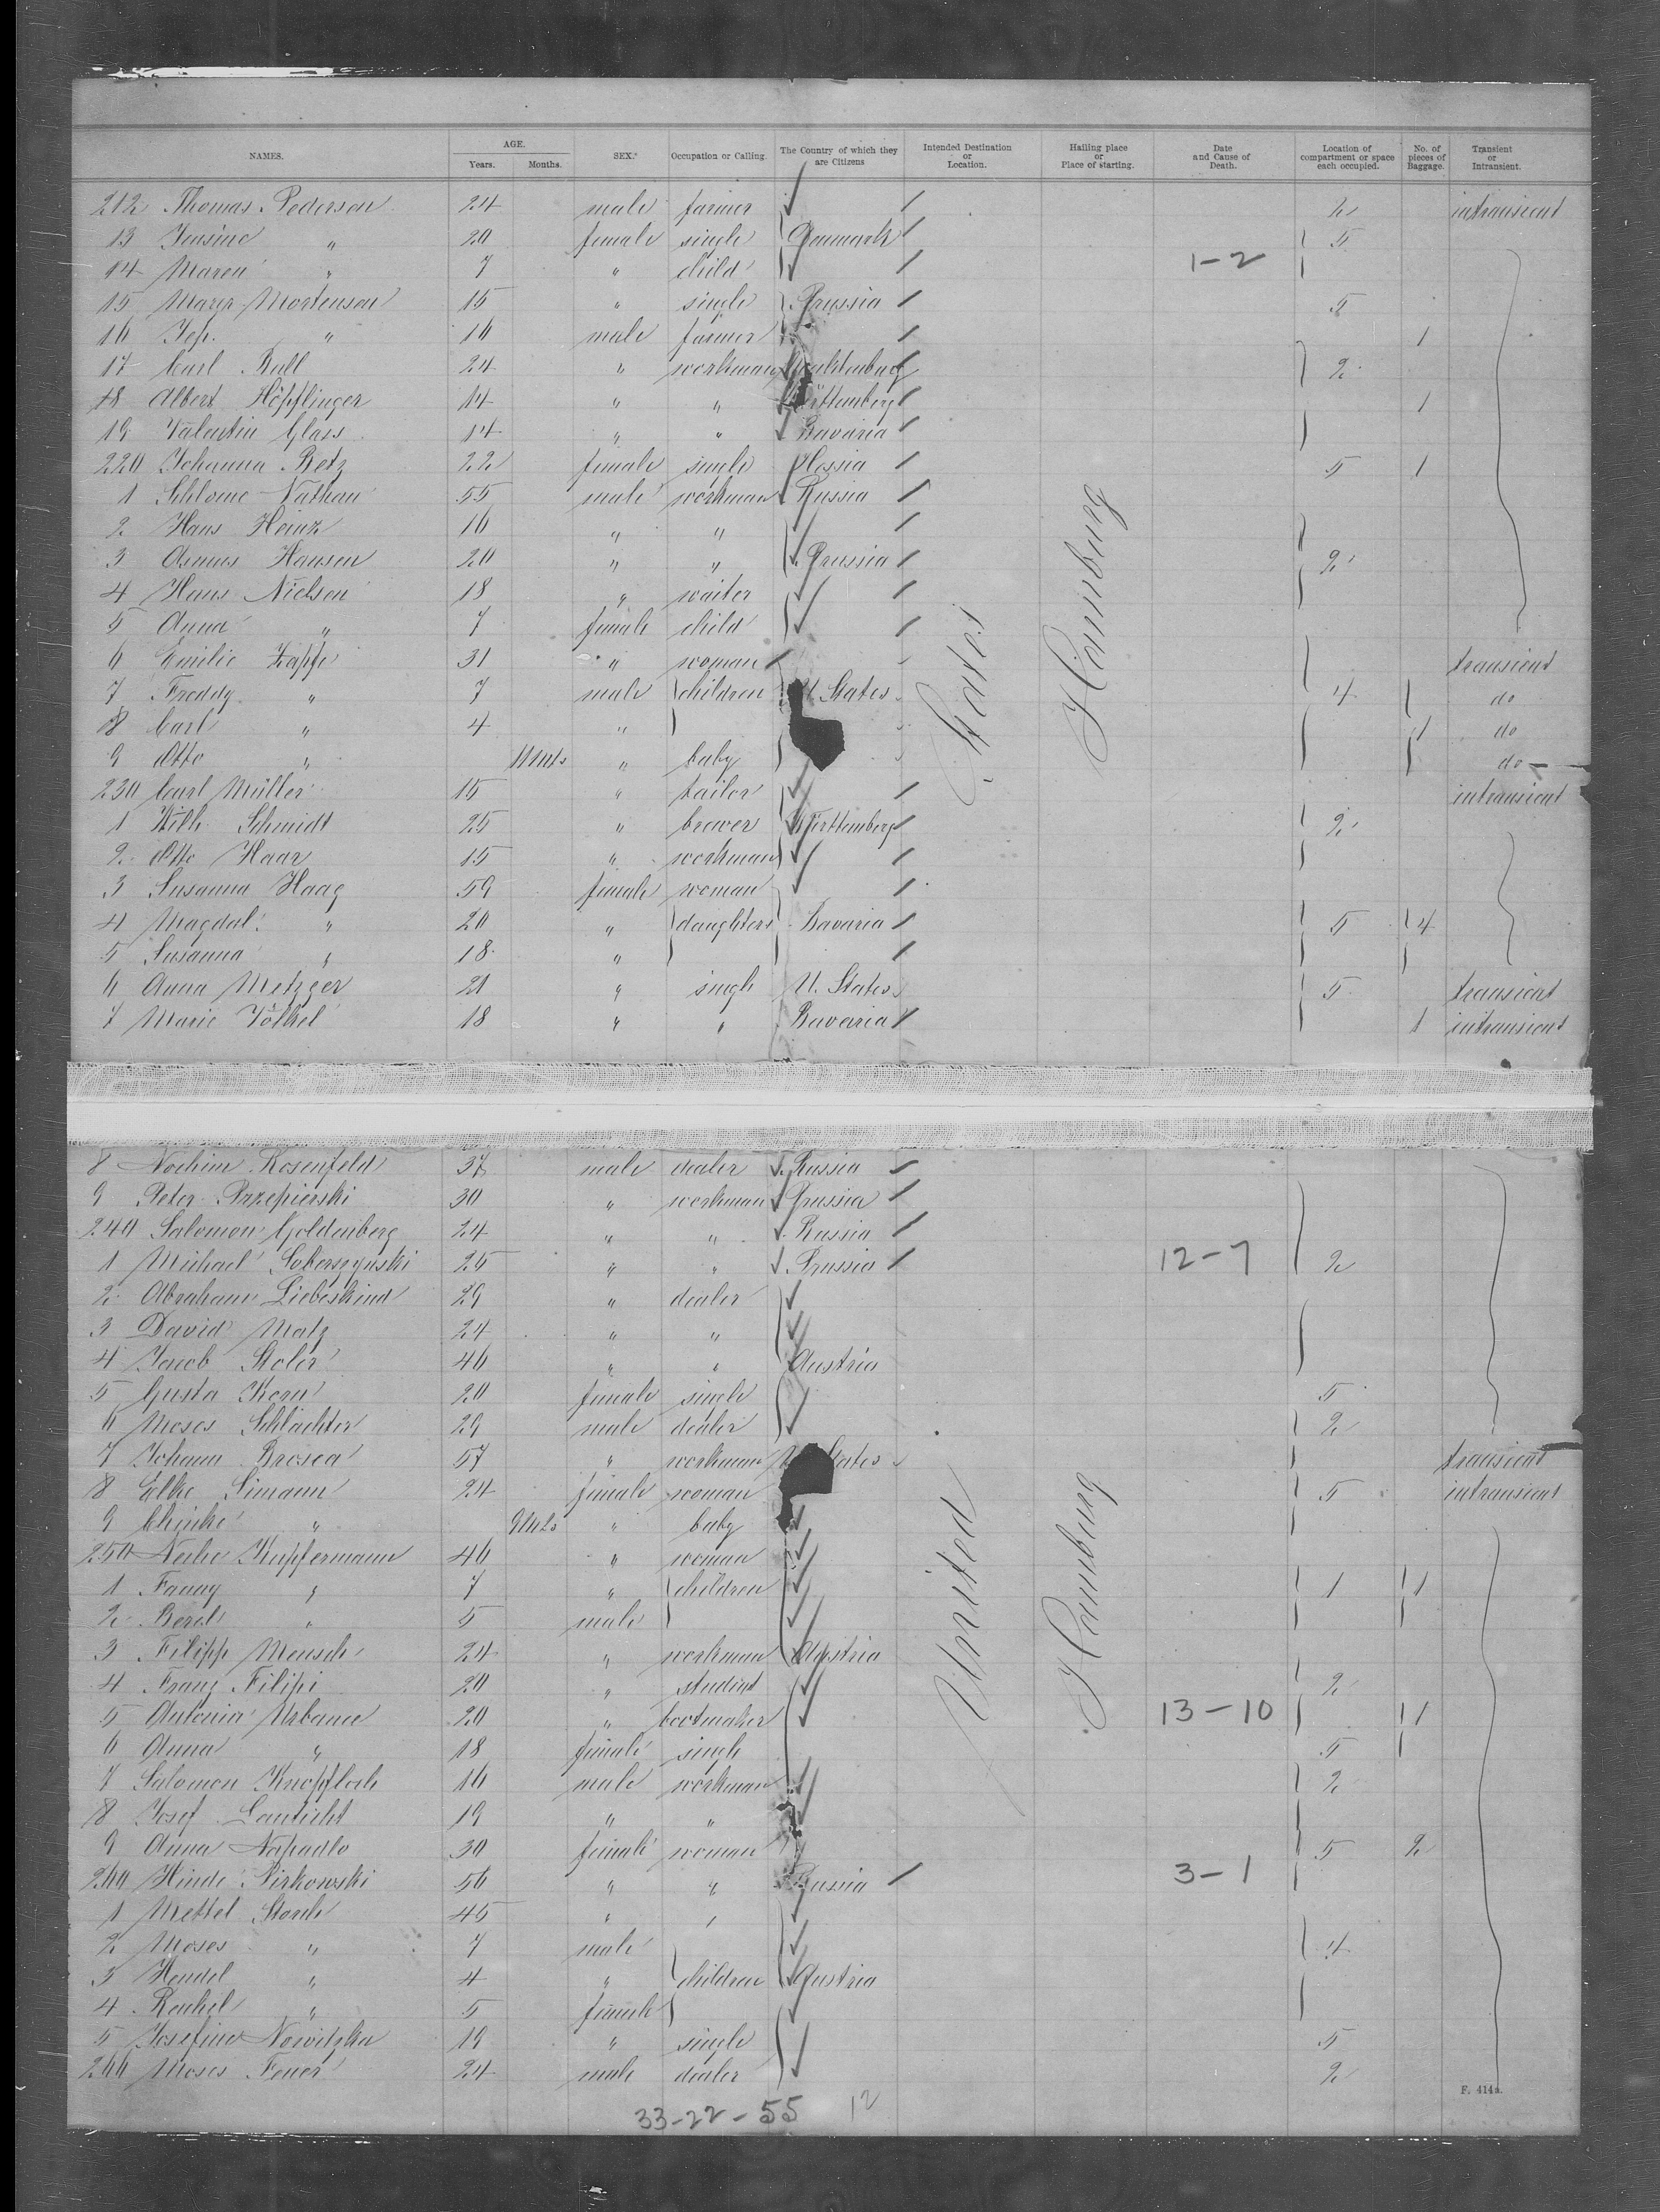 NAMES. AGE. Years. Months. SEX. Occupation or Calling. The Country of which they are Citizens Intended Destination or Location. Hailing place or Place of starting. Date and Cause of Death. Location of compartment or space each occupied. No. of pieces of Baggage. Transient or Intransient.
212 Thomas Pederson 24 male farmer 2 intransient
13 Jensine " 20 female single Danmark 5
14 Maren " 7 " child 1-2
15 Margr. Mortenson 15 " single Prussia 5
16 Jep. " 16 male farmer 1
17 Carl Bull 24 " workman 2
18 Albert Höpflinger 14 " " Württemberg 1
19 Valentin Glass 14 " " Bavaria
220 Johanna Retz 22 female single Hessia 5 1
1 Schlome Nathan 55 male workman Russia
2 Hans Heinz 16 " "
3 Asmus Hansen 20 " " Prussia 2
4 Hans Nielsen 18 " waiter
5 Anna " 7 female child
6 Emilie Zapfe 31 " woman transient
7 Freddy " 7 male children U. States 4 do
8 Carl " 4 " 1 do
9 Otto " 11 mts " baby do
230 Carl Müller 15 " tailor intransient
1 Wilh. Schmidt 25 " brewer Württemberg 2
2 Otto Haar 15 " workman
3 Susanna Haag 59 female woman
4 Magdal. " 20 " daughters Bavaria 5 4
5 Susanna " 18 "
6 Anna Metzger 21 " single U. States 5 transient
7 Marie Völkel 18 " " Bavaria 1 intransient
States
Hamburg
8 Nochim Rosenfeld 37 male dealer Russia
9 Peter Przepierski 30 " workman Prussia
240 Salomon Goldenberg 24 " " Russia
1 Michael Soberszynski 25 " " Prussia 12-7 2
2 Abraham Liebeskind 29 " dealer
3 David Matz 24 " "
4 Jacob Stoler 46 " " Austria
5 Gusta Korn 20 female single 5
6 Moses Schlächter 29 male dealer 2
7 Johann Brosca 57 " workman States transient
8 Elke Simann 24 female woman 5 intransient
9 Cheike " 9 mts " baby
250 Neche Kupfermann 46 " woman
1 Fanny " 7 " children 1 1
2 Berel " 5 male
3 Filipp Mensch 24 " workman Austria
4 Franz Filipi 20 " student 2
5 Antonia Urbance 20 " bootmaker 13-10 1
6 Anna " 18 female single 5
7 Salomon Knopfloch 16 male workman 2
8 Josef 19 " "
9 Anna Napadlo 30 female woman 5 2
260 Hinde Pirkowski 56 " " Russia 3-1
1 Mettel Storch 45 " "
2 Moses " 7 male 4
3 Hendel " 4 " children Austria
4 Rachel " 5 female
5 Josefine Nowitzka 19 " single 5
266 Moses Feuer 24 male dealer 2
United
Hamburg
F. 414a.
33-22-55 12